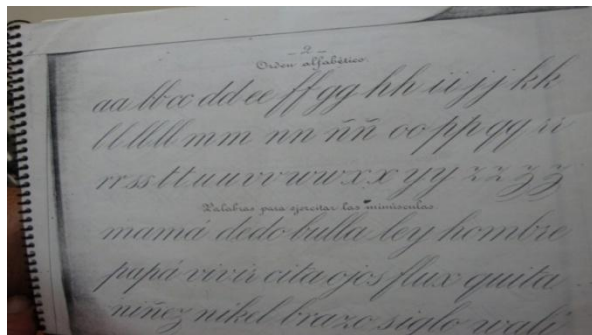 — 2 —
Orden alfabético.
aa bb cc dd ee ff gg hh ii jj kk
ll ll ll mm nn ññ oo pp qq
rr ss tt uu vv ww xx yy zz zz
Palabras para ejercitar las minúsculas.
mamá dedo bulla ley hombre
papá vivir cita ojos flux quita
niñez nikel brazo siglo